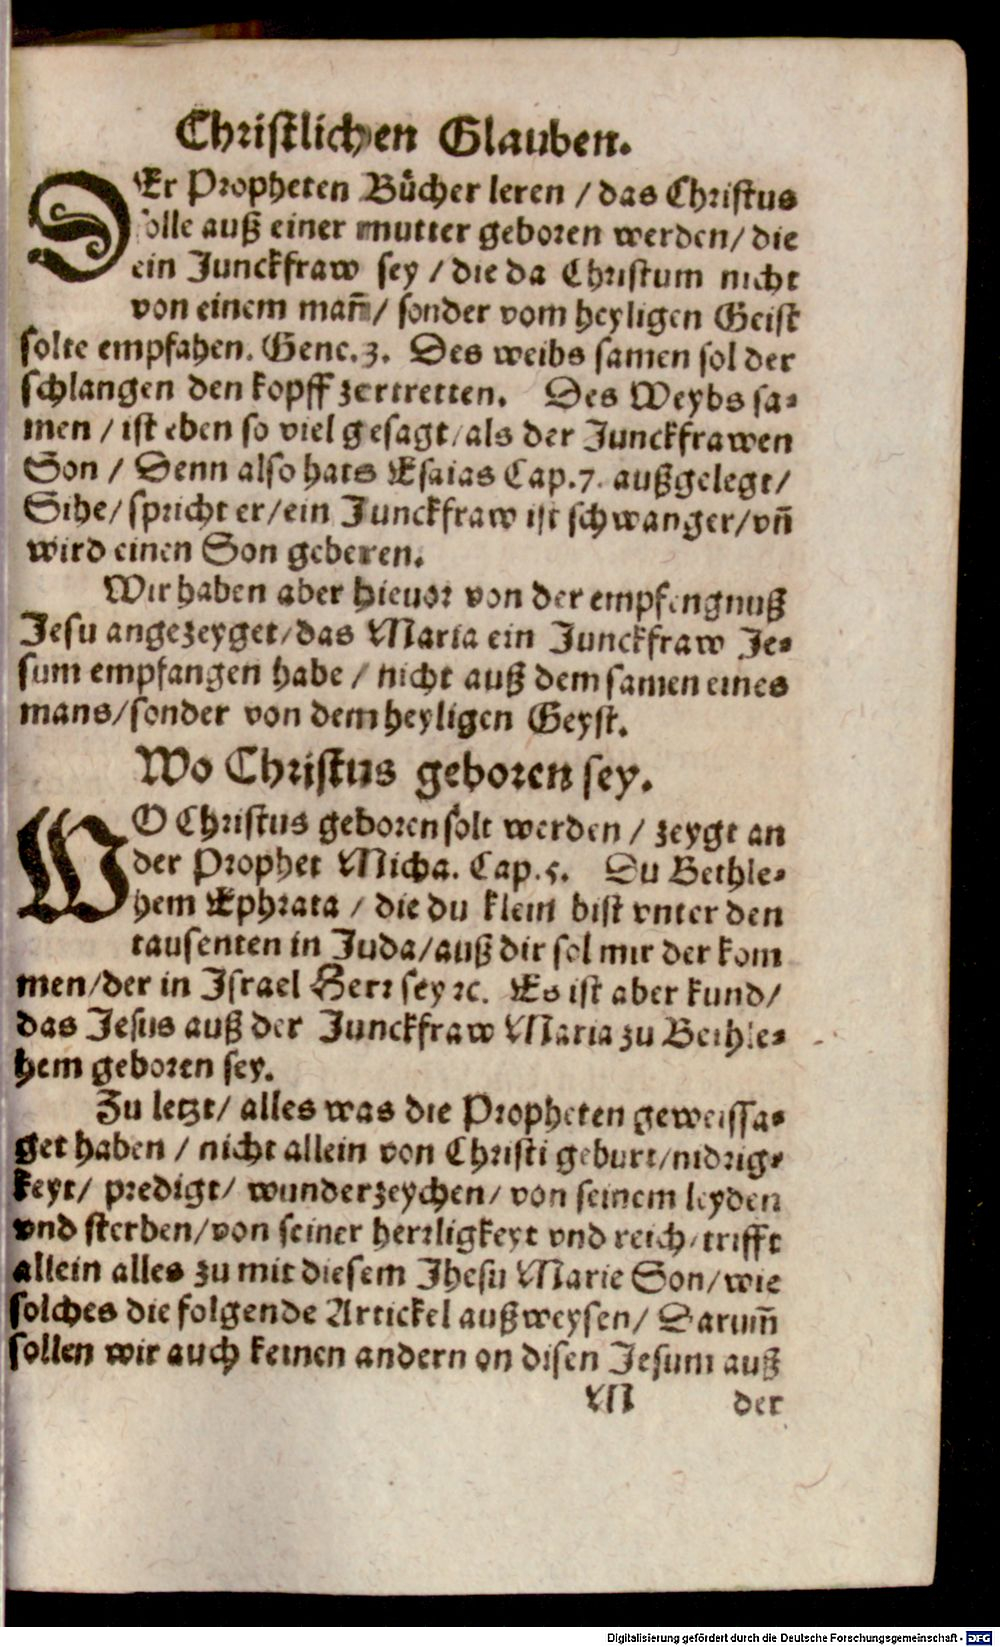 Christlichen Glauben.
DEr Propheten Bücher leren / das Christus
solle auß einer mutter geboren werden / die
ein Junckfraw sey / die da Christum nicht
von einem mañ / sonder vom heyligen Geist
solte empfahen. Gene. 3. Des weibs samen sol der
schlangen den kopff zertretten. Des Weybs sa-
men / ist eben so viel gesagt / als der Junckfrawen
Son / Denn also hats Esaias Cap. 7. außgelegt /
Sihe / spricht er / ein Junckfraw ist schwanger / vñ
wird einen Son geberen.
Wir haben aber hieuor von der empfengnuß
Jesu angezeyget / das Maria ein Junckfraw Je-
sum empfangen habe / nicht auß dem samen eines
mans / sonder von dem heyligen Geyst.
Wo Christus geboren sey.
WO Christus geboren solt werden / zeygt an
der Prophet Micha. Cap. 5. Du Bethle-
hem Ephrata / die du klein bist vnter den
tausenten in Juda / auß dir sol mir der kom
men / der in Israel Herr sey ꝛc. Es ist aber kund /
das Jesus auß der Junckfraw Maria zu Bethle-
hem geboren sey.
Zu letzt / alles was die Propheten geweissa-
get haben / nicht allein von Christi geburt / nidrig-
keyt / predigt / wunderzeychen / von seinem leyden
vnd sterben / von seiner herrligkeyt vnd reich / trifft
allein alles zu mit diesem Jhesu Marie Son / wie
solches die folgende Artickel außweysen / Darum̃
sollen wir auch keinen andern on disen Jesum auß
M der
Digitalisierung gefördert durch die Deutsche Forschungsgemeinschaft - DFG